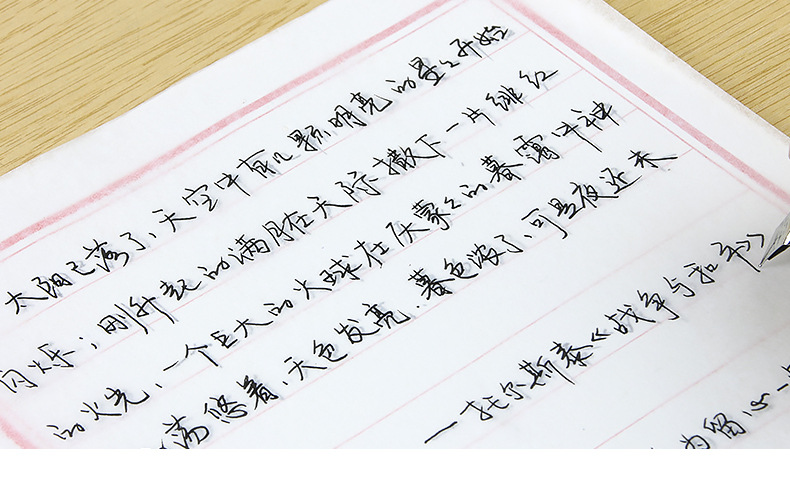 太阳已落了、天空中有几颗明亮的星々开始
闪烁；刚升起的满月在天际撒下一片绯红
的火光、一个巨大的火球在灰蒙々的暮霭中神
荡悠着、天色发亮．暮色浓了、可是夜还未
—托尔斯泰《战争与和平》
为留心一